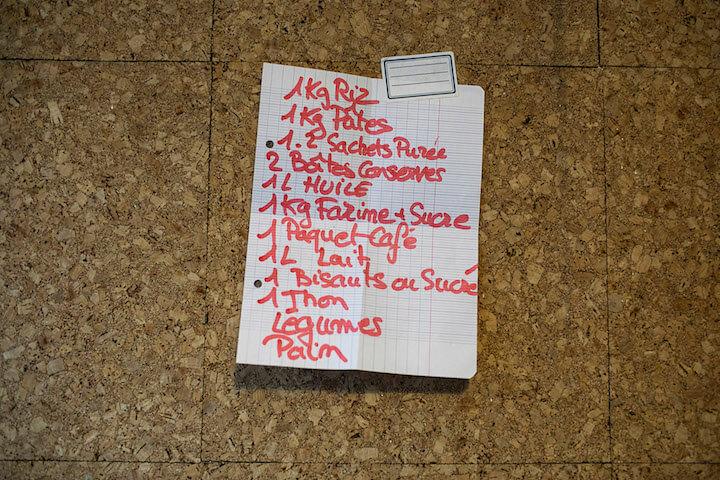 1Kg Riz
1Kg Pâtes
1.2 Sachets Purée
2 Boîtes Conserves
1L HUILE
1Kg Farine + Sucre
1 Paquet Café
1L Lait
1 Biscuits ou Sucre
1 Thon
Légumes
Pain